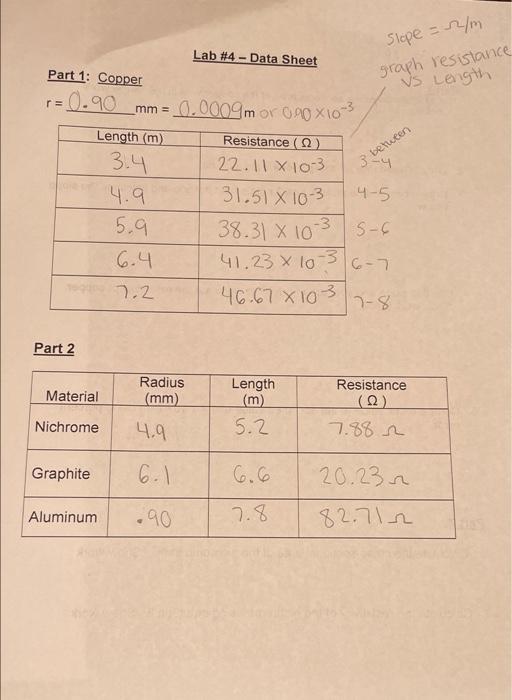 slope = Ω/m
Lab #4 – Data Sheet
graph resistance
vs Length
Part 1: Copper
r = 0.90 mm = 0.0009 m or 0.90 x10-3
between
Length (m) Resistance ( Ω )
3.4 22.11 x 10-3 3-4
4.9 31.51 x 10-3 4-5
5.9 38.31 x 10-3 5-6
6.4 41.23 x 10-3 6-7
7.2 46.67 x10-3 7-8
Part 2
Material Radius (mm) Length (m) Resistance ( Ω )
Nichrome 4.9 5.2 7.88 Ω
Graphite 6.1 6.6 20.23 Ω
Aluminum .90 7.8 82.71 Ω